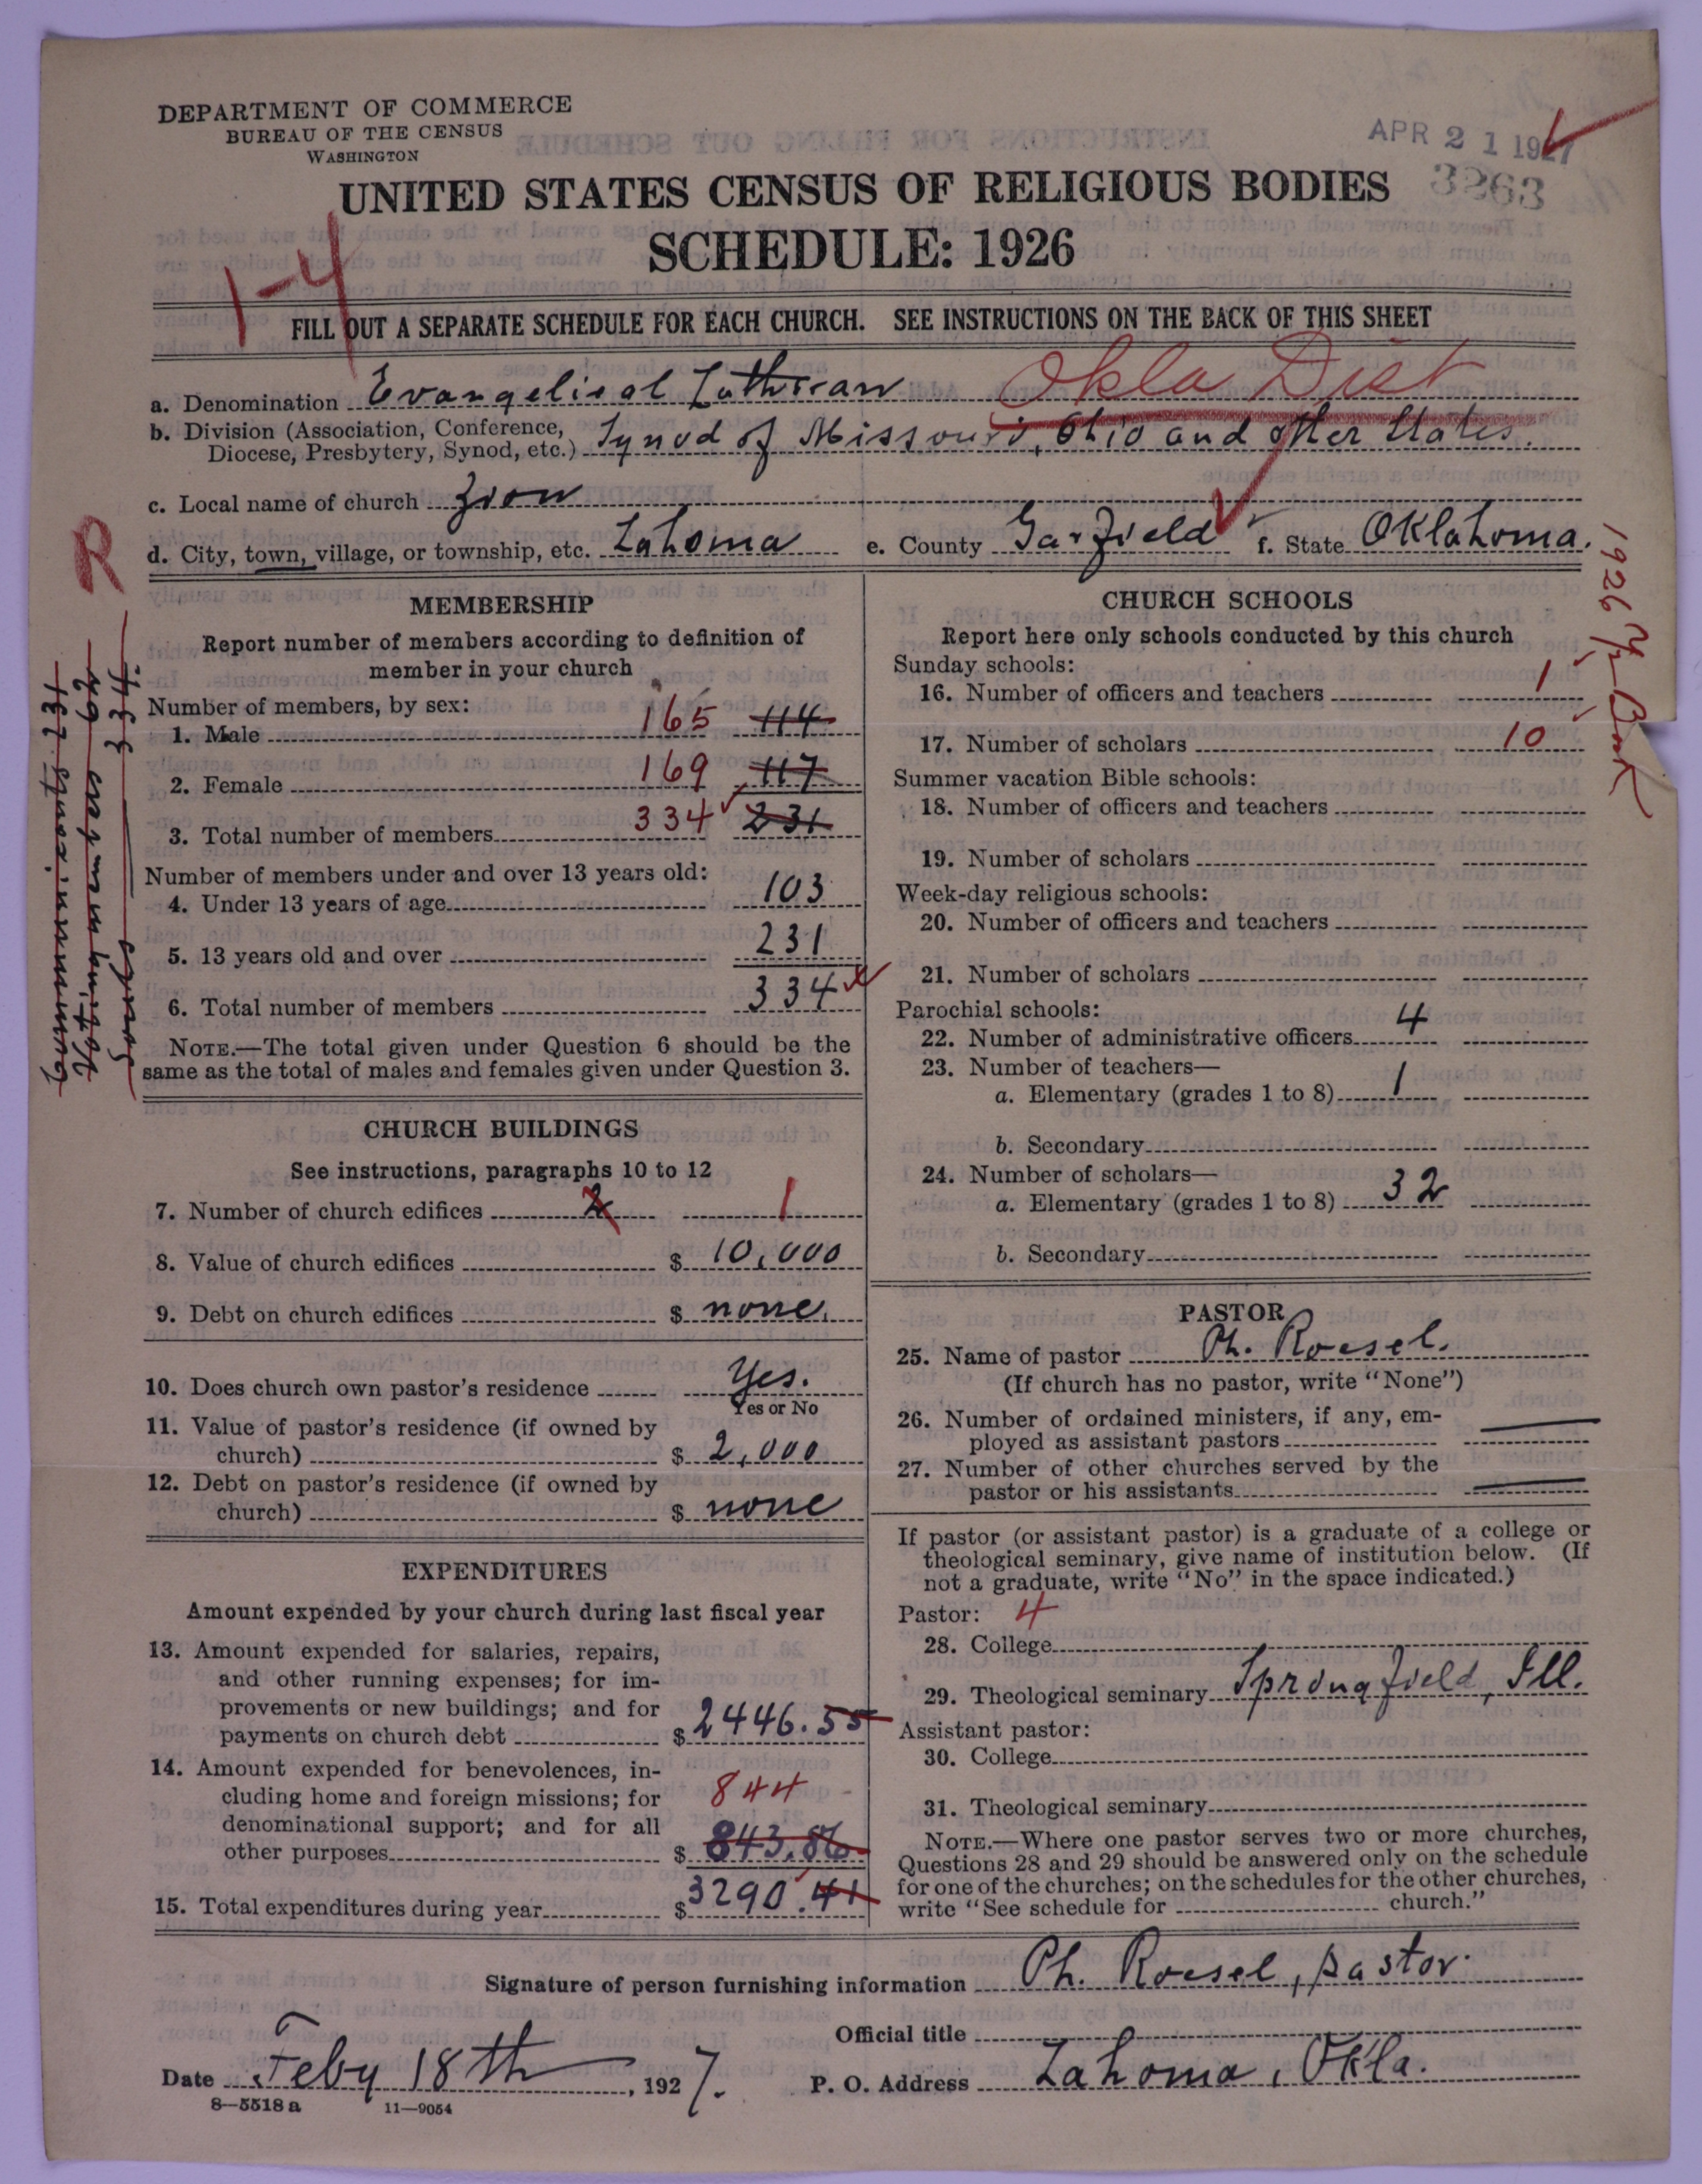 DEPARTMENT OF COMMERCE
BUREAU OF THE CENSUS
WASHINGTON
APR 21 1927
3263
UNITED STATES CENSUS OF RELIGIOUS BODIES
SCHEDULE: 1926
1-4
FILL OUT A SEPARATE SCHEDULE FOR EACH CHURCH. SEE INSTRUCTIONS ON THE BACK OF THIS SHEET
a. Denomination Evangelical Lutheran Okla Dist
b. Division (Association, Conference,
Diocese, Presbytery, Synod, etc.) Synod of Missouri, Ohio and other States.
c. Local name of church Zion
d. City, town, village, or township, etc. Lahoma e. County Garfield f. State Oklahoma.
R
1926 Yr Book
MEMBERSHIP
Report number of members according to definition of
member in your church
Number of members, by sex:
1. Male 165 114
2. Female 169 117
3. Total number of members 334 231
Number of members under and over 13 years old:
4. Under 13 years of age 103
5. 13 years old and over 231
6. Total number of members 334
NOTE.—The total given under Question 6 should be the
same as the total of males and females given under Question 3.
CHURCH BUILDINGS
See instructions, paragraphs 10 to 12
7. Number of church edifices 2 1
8. Value of church edifices $ 10,000
9. Debt on church edifices $ none.
10. Does church own pastor's residence Yes.
Yes or No
11. Value of pastor's residence (if owned by
church) $ 2,000
12. Debt on pastor's residence (if owned by
church) $ none
EXPENDITURES
Amount expended by your church during last fiscal year
13. Amount expended for salaries, repairs,
and other running expenses; for im-
provements or new buildings; and for
payments on church debt $ 2446.55
14. Amount expended for benevolences, in-
cluding home and foreign missions; for 844
denominational support; and for all
other purposes $ 843.86
15. Total expenditures during year $ 3290.41
CHURCH SCHOOLS
Report here only schools conducted by this church
Sunday schools:
16. Number of officers and teachers 1
17. Number of scholars 10
Summer vacation Bible schools:
18. Number of officers and teachers
19. Number of scholars
Week-day religious schools:
20. Number of officers and teachers
21. Number of scholars
Parochial schools:
22. Number of administrative officers 4
23. Number of teachers—
a. Elementary (grades 1 to 8) 1
b. Secondary
24. Number of scholars—
a. Elementary (grades 1 to 8) 32
b. Secondary
PASTOR
25. Name of pastor Ph. Roesel.
(If church has no pastor, write "None")
26. Number of ordained ministers, if any, em-
ployed as assistant pastors —
27. Number of other churches served by the
pastor or his assistants —
If pastor (or assistant pastor) is a graduate of a college or
theological seminary, give name of institution below. (If
not a graduate, write "No" in the space indicated.)
Pastor: 4
28. College
29. Theological seminary Springfield, Ill.
Assistant pastor:
30. College
31. Theological seminary
NOTE.—Where one pastor serves two or more churches,
Questions 28 and 29 should be answered only on the schedule
for one of the churches; on the schedules for the other churches,
write "See schedule for church."
Signature of person furnishing information Ph. Roesel, pastor.
Official title
Date Feby 18th, 1927. P. O. Address Lahoma, Okla.
8—5518 a 11—9054